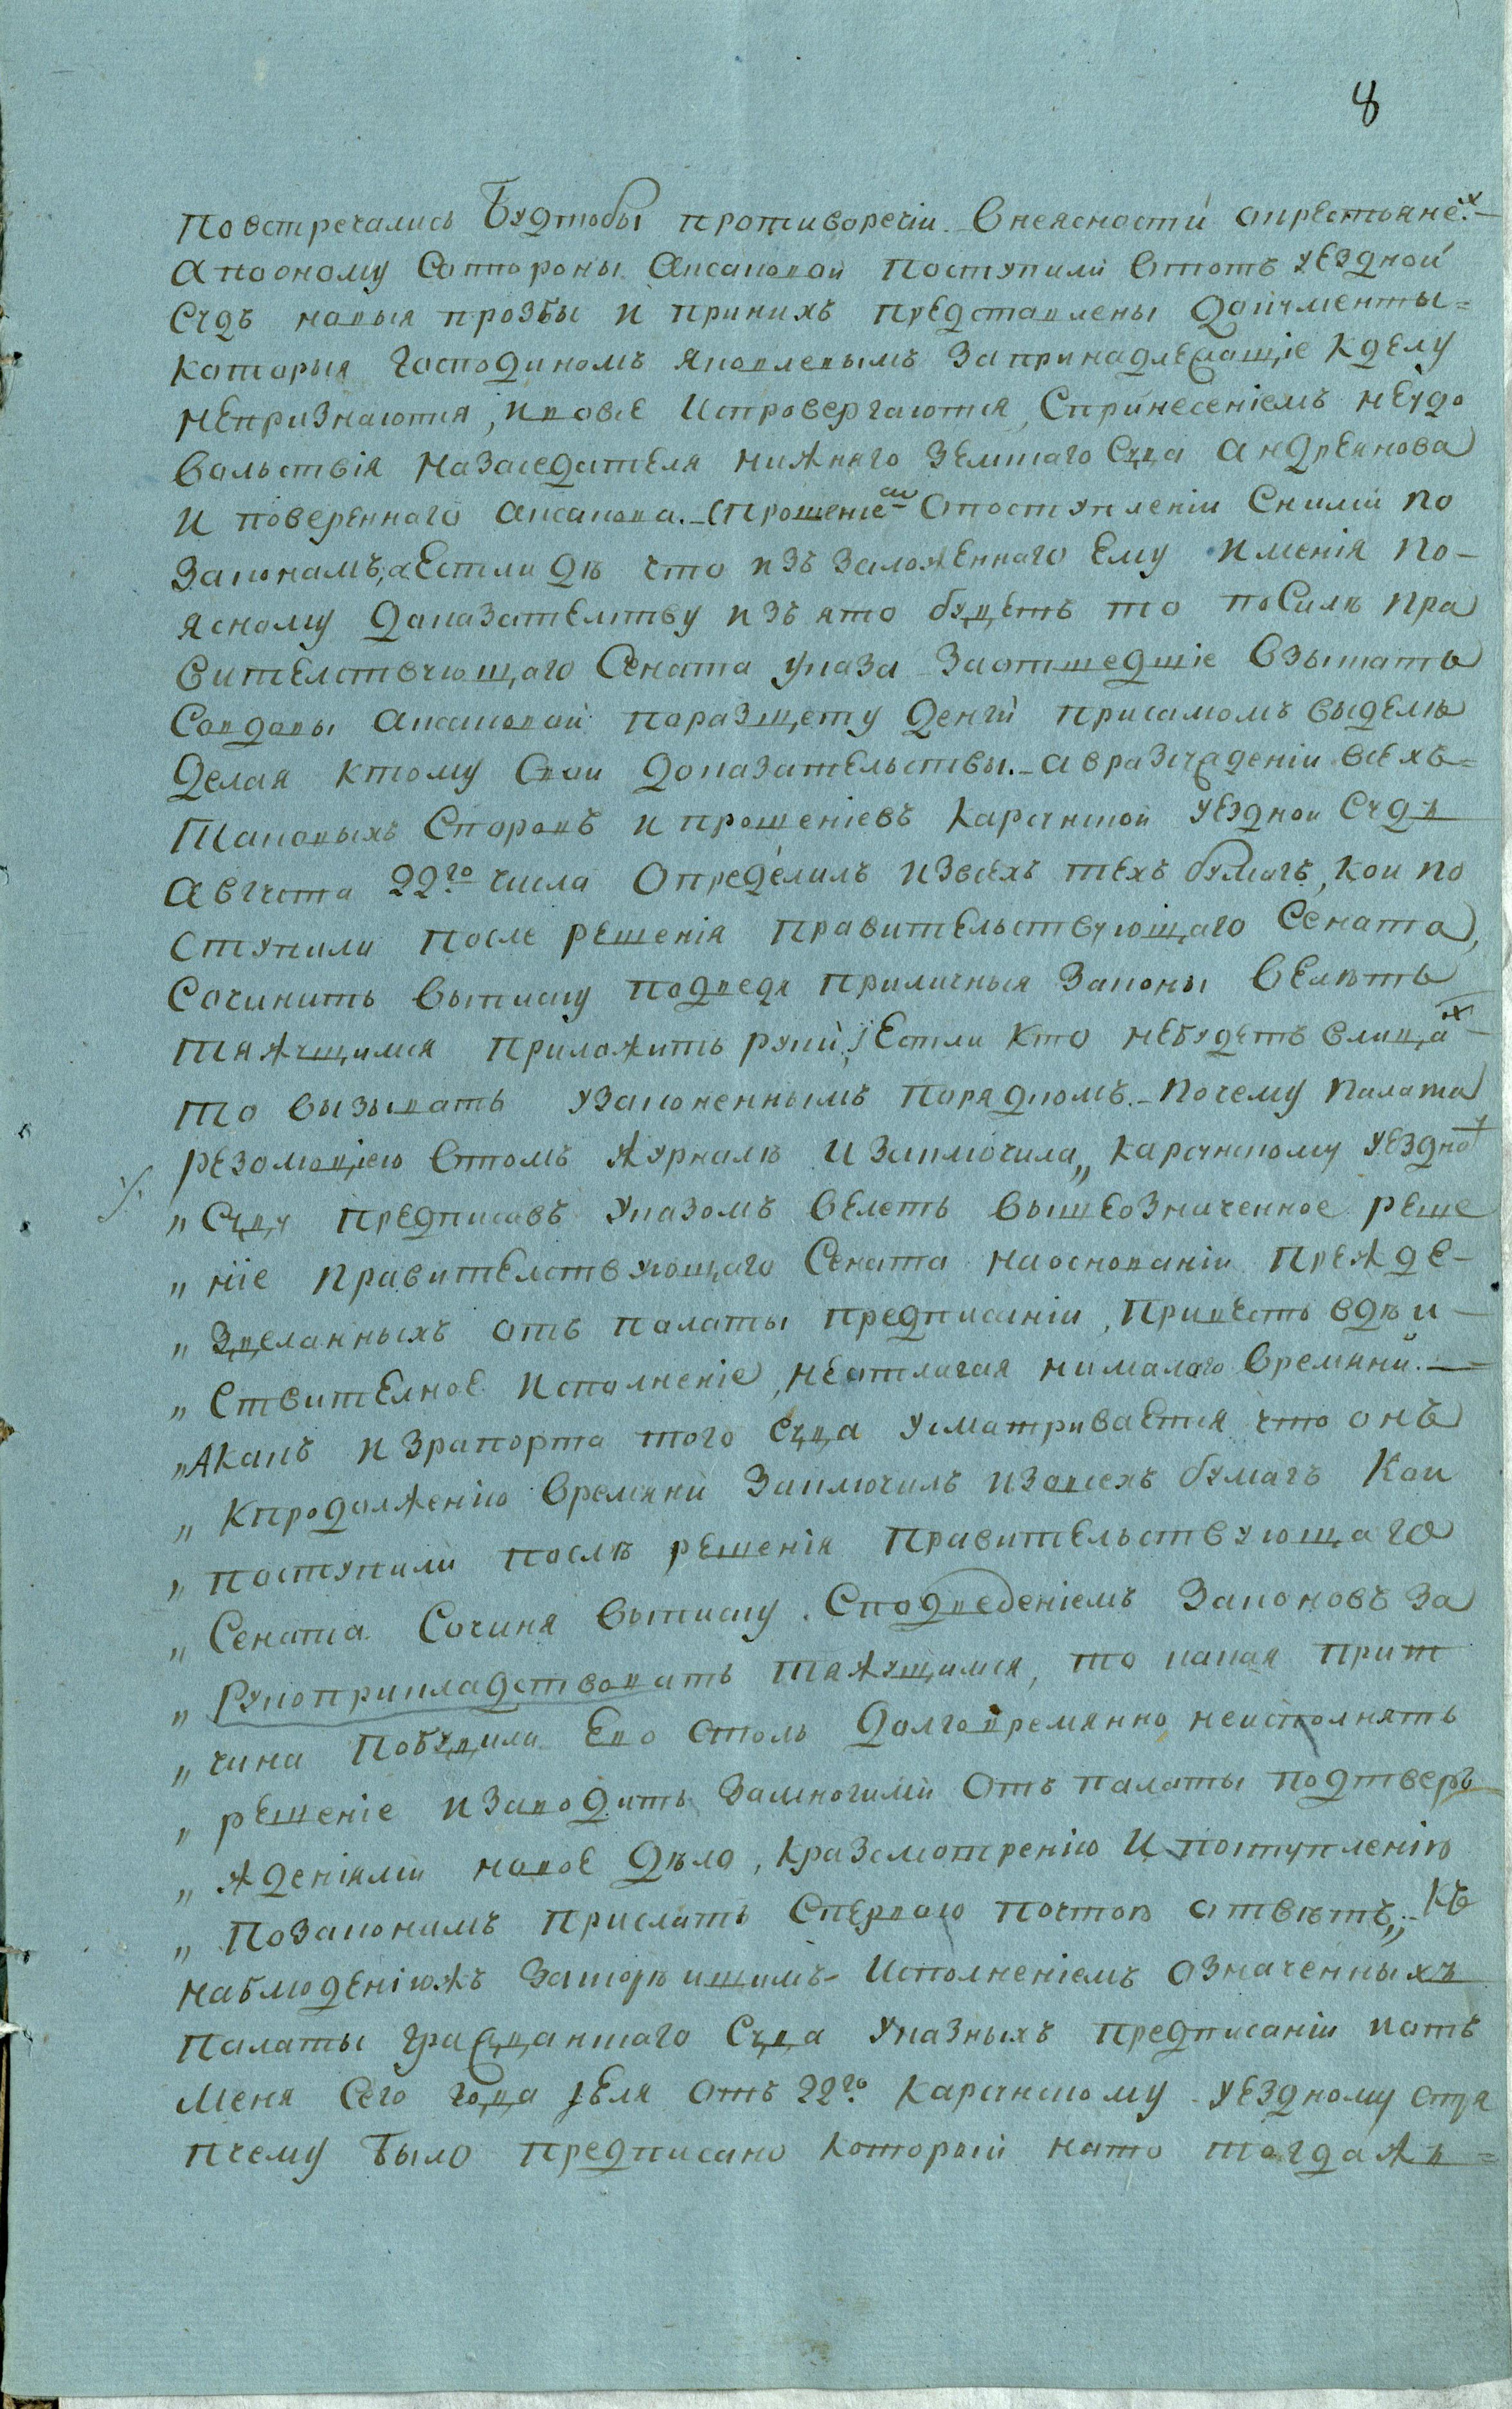 8
Повстречались Будтобы противоречіи внеясности окрестьяне.х
апооному Состороны Аксаковои поступили Втотъ уездной
Судъ новыя прозбы и принихъ представлены Документы
которыя Господиномъ Яковлевымъ запринадлежащіе кделу
непризнаются, ивовсе испровергаются, Спринесеніемъ неудо
вольствія назаседателя нижняго Земскаго Суда Андреянова
и повереннаго Аксакова. Спрошеніемъ опоступленіи Сними по
Законамъ, аЕстли де что изъ заложеннаго Ему имѣнія по
ясному доказателству изъято будетъ то посилѣ пра
вителствующаго Сената указа заотшедшіе взыскать
Совдовы Аксаковой поразщету денги присамомъ выделѣ
делая ктому Свои доказательствы. авразсуждении всехъ
Таковыхъ Споровъ и прошеніевъ Карсунской уездной Судъ
августа 22го числа Определилъ извсехъ техъ бумагъ, кои по
ступили после решенія правительствующаго Сената,
Сочинить выписку подведя приличныя законы велѣть
тяжущимся приложить руки, Естли кто небудетъ влицах
то вызывать узаконеннымъ порядкомъ. Почему палата
резолюціею втомъ журналѣ изаключила „Карсунскому уездно
„Суду предписавъ указомъ велеть вышеозначенное реше
„ніе правителствующаго Сената наоснованіи прежде
„зделанныхъ отъ палаты предписаніи, привесть вдѣи
„ствителное исполненіе, неотлагая нималого времяни.
„Акакъ израпорта того суда усматривается что онъ
„кпродолженію времяни заключилъ извсехъ бумагъ кои
„поступили послѣ решенія Правительствующаго
„Сената Сочиня выписку Сподведеніемъ законовъ за
„Рукоприкладствовать тяжущимся, то какая прит
„чина побудила Ево столь долговремянно неисполнять
„решеніе изаводить замногими отъ палаты подтвер
„жденіями новое дѣло, кразсмотренію и поступленію
„позаконамъ прислать Спервою почтою ответъ,„ Къ
наблюденіюжъ заскорѣишимъ исполненіемъ означенныхъ
палаты гражданскаго Суда указныхъ предписаніи иотъ
меня Сего года отъ 22го Карсунскому уездному стря
пчему Было предписано который нато тогдажъ